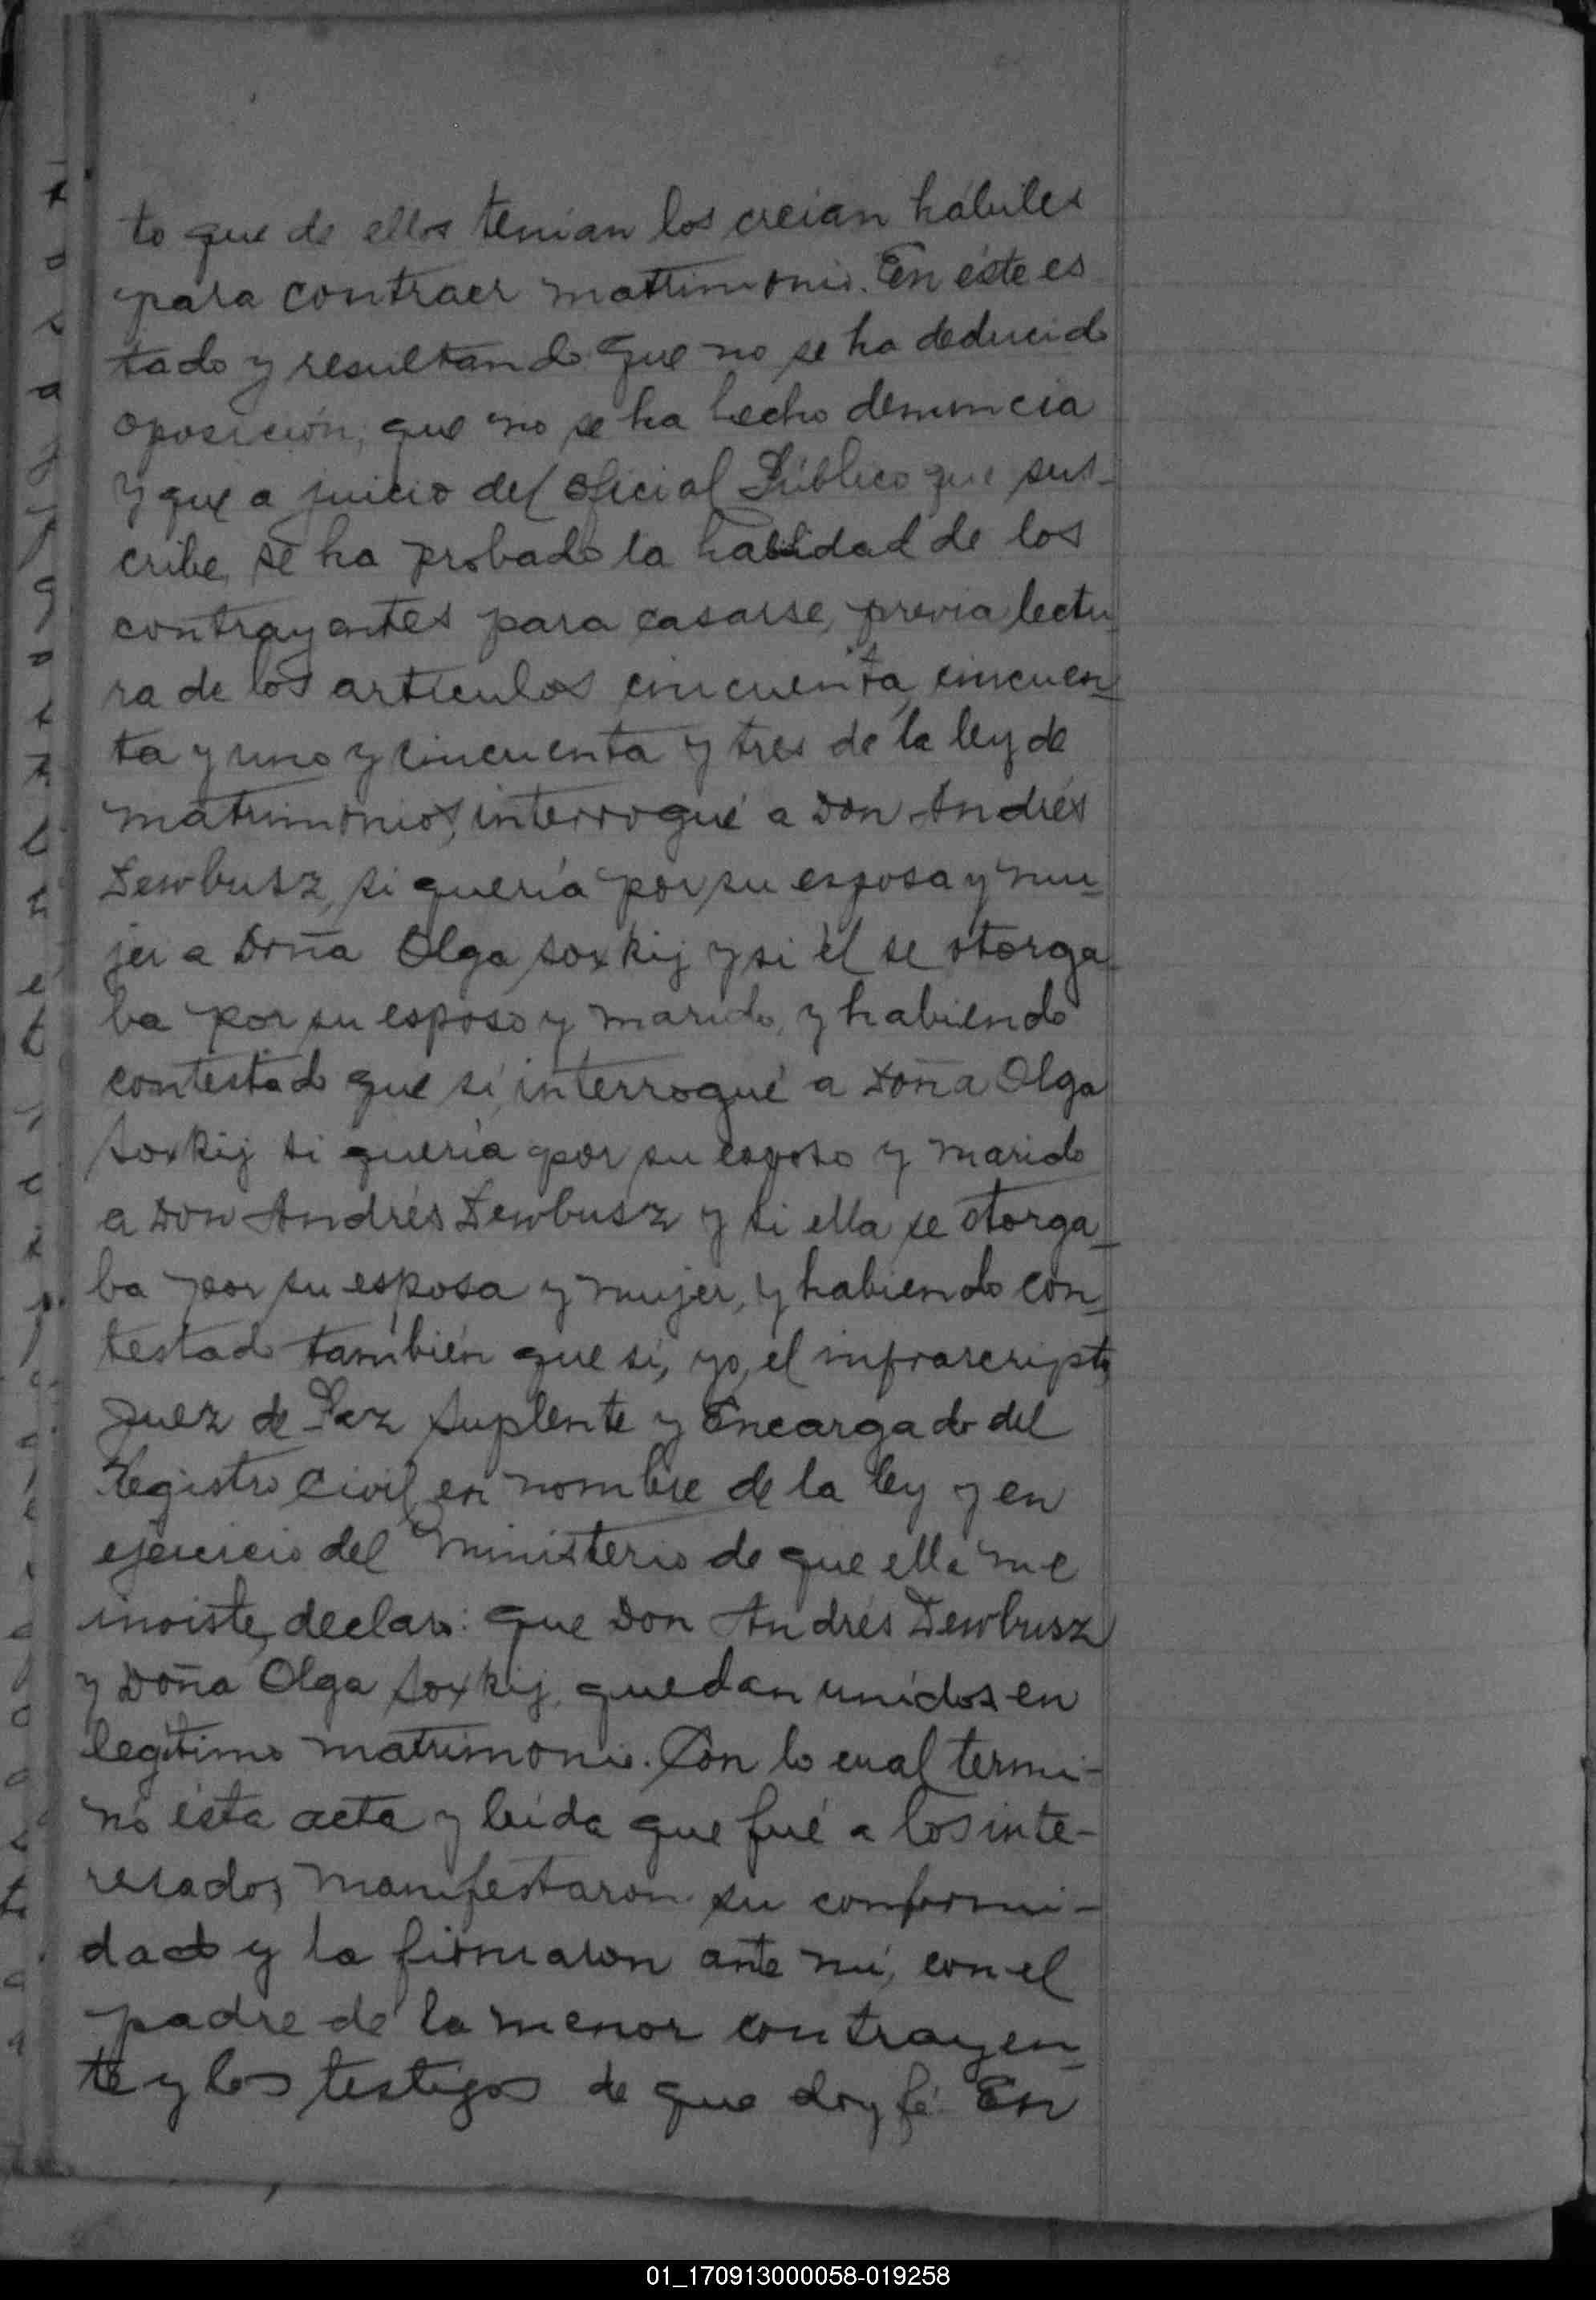 to que de ellos tenían los creían hábiles
para contraer matrimonio. En éste es
tado y resultando que no se ha deducido
oposición, que no se ha hecho denuncia
y que a juicio del Oficial Público que sus-
cribe, se ha probado la habilidad de los
contrayentes para casarse, previa lectu
ra de los artículos cincuenta, cincuen-
ta y uno y cincuenta y tres de la ley de
matrimonios, interrogué a Don Andrés
Dewbusz, si quería por su esposa y mu-
jer a Doña Olga Soxkij y si él se otorga-
ba por su esposo y marido, y habiendo
contestado que sí, interrogué a Doña Olga
Soxkij si quería por su esposo y marido
a Don Andrés Dewbusz y si ella se otorga-
ba por su esposa y mujer, y habiendo con-
testado también que sí, yo, el infrascripto
Juez de Paz Suplente y Encargado del
Registro Civil, en nombre de la ley y en
ejercicio del Ministerio de que ella me
inviste, declaro: que Don Andrés Dewbusz
y Doña Olga Soxkij, quedan unidos en
legítimo matrimonio. Con lo cual termi-
nó ésta acta y leída que fué a los inte-
resados, manifestaron su conformi-
dad y la firmaron ante mí, con el
padre de la menor contrayen-
te y los testigos de que doy fé. En
01_170913000058-019258